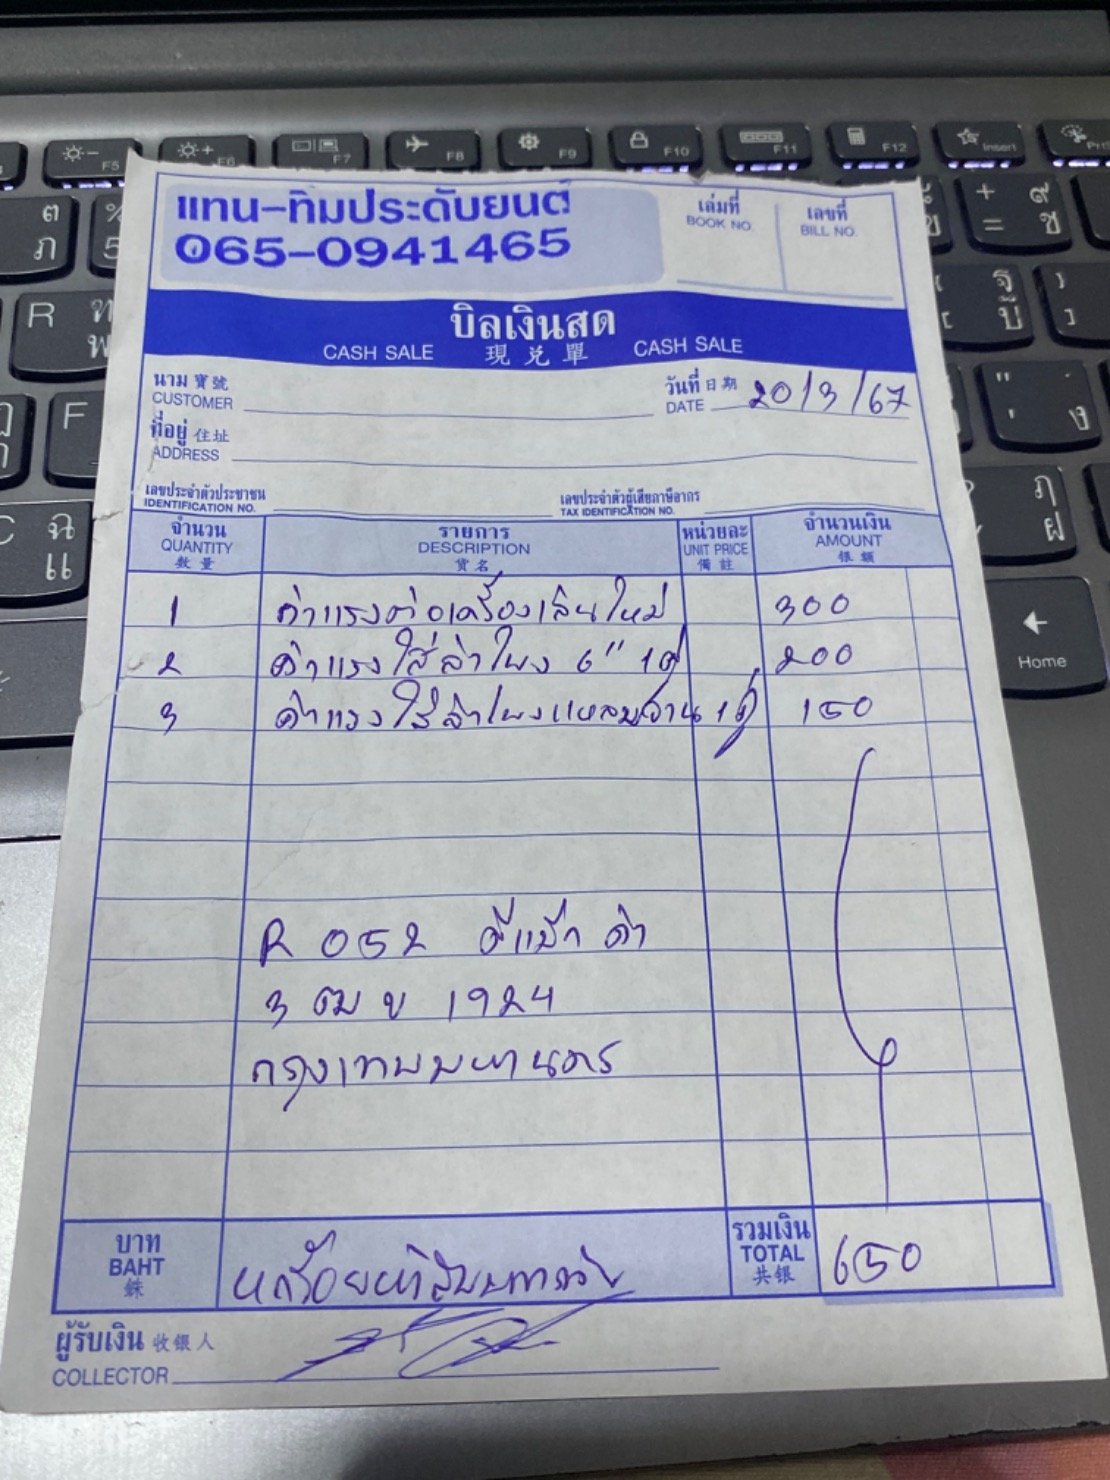 แทน-ทิมประดับยนต์
065-0941465
เล่มที่
BOOK NO.
เลขที่
BILL NO.
บิลเงินสด
CASH SALE 現兑單 CASH SALE
นาม 寶號
CUSTOMER
วันที่ 日期
DATE 20/3/67
ที่อยู่ 住址
ADDRESS
เลขประจำตัวประชาชน
IDENTIFICATION NO.
เลขประจำตัวผู้เสียภาษีอากร
TAX IDENTIFICATION NO.
จำนวน
QUANTITY
數量
รายการ
DESCRIPTION
貨名
หน่วยละ
UNIT PRICE
備註
จำนวนเงิน
AMOUNT
銀額
1 ค่าแรงต่อเครื่องเล่นใหม่ 300
2 ค่าแรงใส่ลำโพง 6" 1คู่ 200
3 ค่าแรงใส่ลำโพงแหลมจาน 1คู่ 150
R 052 ดีแม็ก ดำ
3 ฒข 1924
กรุงเทพมหานคร
บาท
BAHT
銖
หกร้อยห้าสิบบาทถ้วน
รวมเงิน
TOTAL
共银
650
ผู้รับเงิน 收銀人
COLLECTOR
F5
F6
F7
F8
F9
F10
F11
F12
Insert
Home